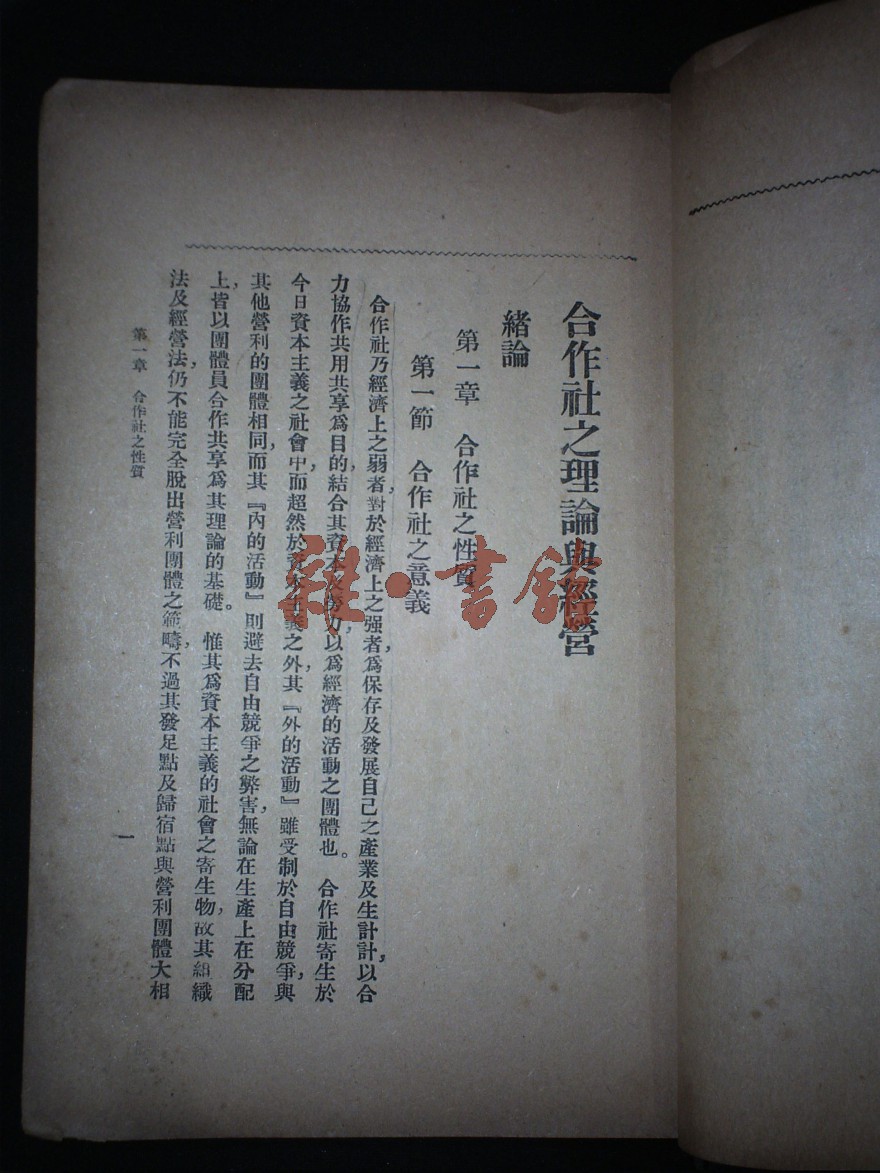 合作社之理論與經營
緒論
第一章　合作社之性質
第一節　合作社之意義
合作社乃經濟上之弱者，對於經濟上之强者，爲保存及發展自己之產業及生計計，以合
力協作共用共享爲目的，結合其資本及勞力，以爲經濟的活動之團體也。　合作社寄生於
今日資本主義之社會中，而超然於資本主義之外，其『外的活動』雖受制於自由競爭，與
其他營利的團體相同，而其『內的活動』則避去自由競爭之弊害，無論在生產上在分配
上，皆以團體員合作共享爲其理論的基礎。　惟其爲資本主義的社會之寄生物，故其組織
法及經營法，仍不能完全脫出營利團體之範疇，不過其發足點及歸宿點與營利團體大相
第一章　合作社之性質
一
雜·書館